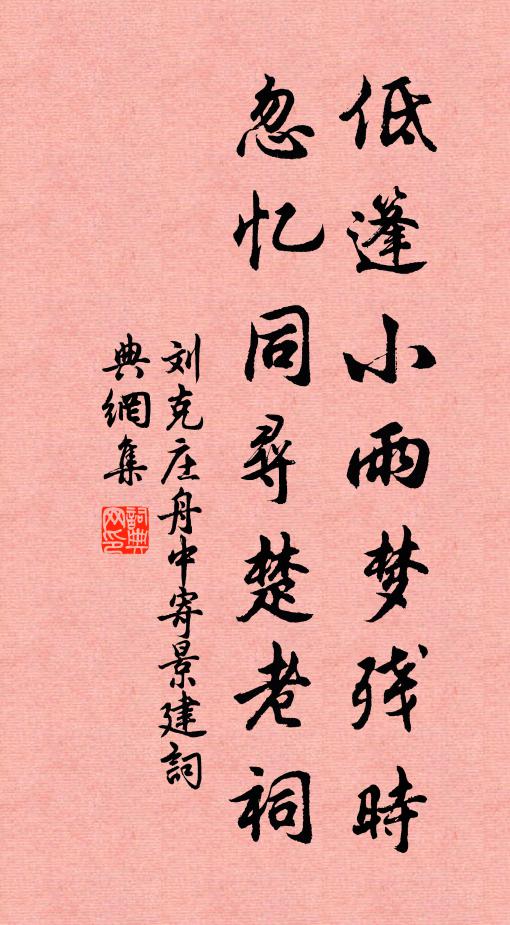 低蓬小雨梦残时
忽忆同寻楚老祠
刘克庄舟中寄景建詞
典網集
詞典
网印